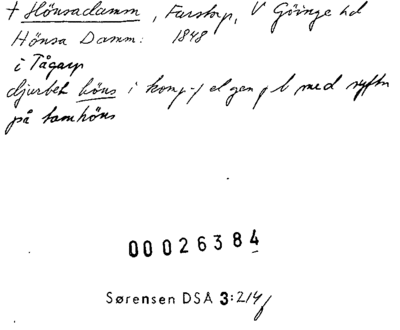 † Hönsadamm, Farstorp, V Göinge hd
Hönsa Damm: 1848
i Tågarp
djurbet höns i komp-f el gen pl med syftn
på tamhöns
00026384
Sørensen DSÅ 3:214f